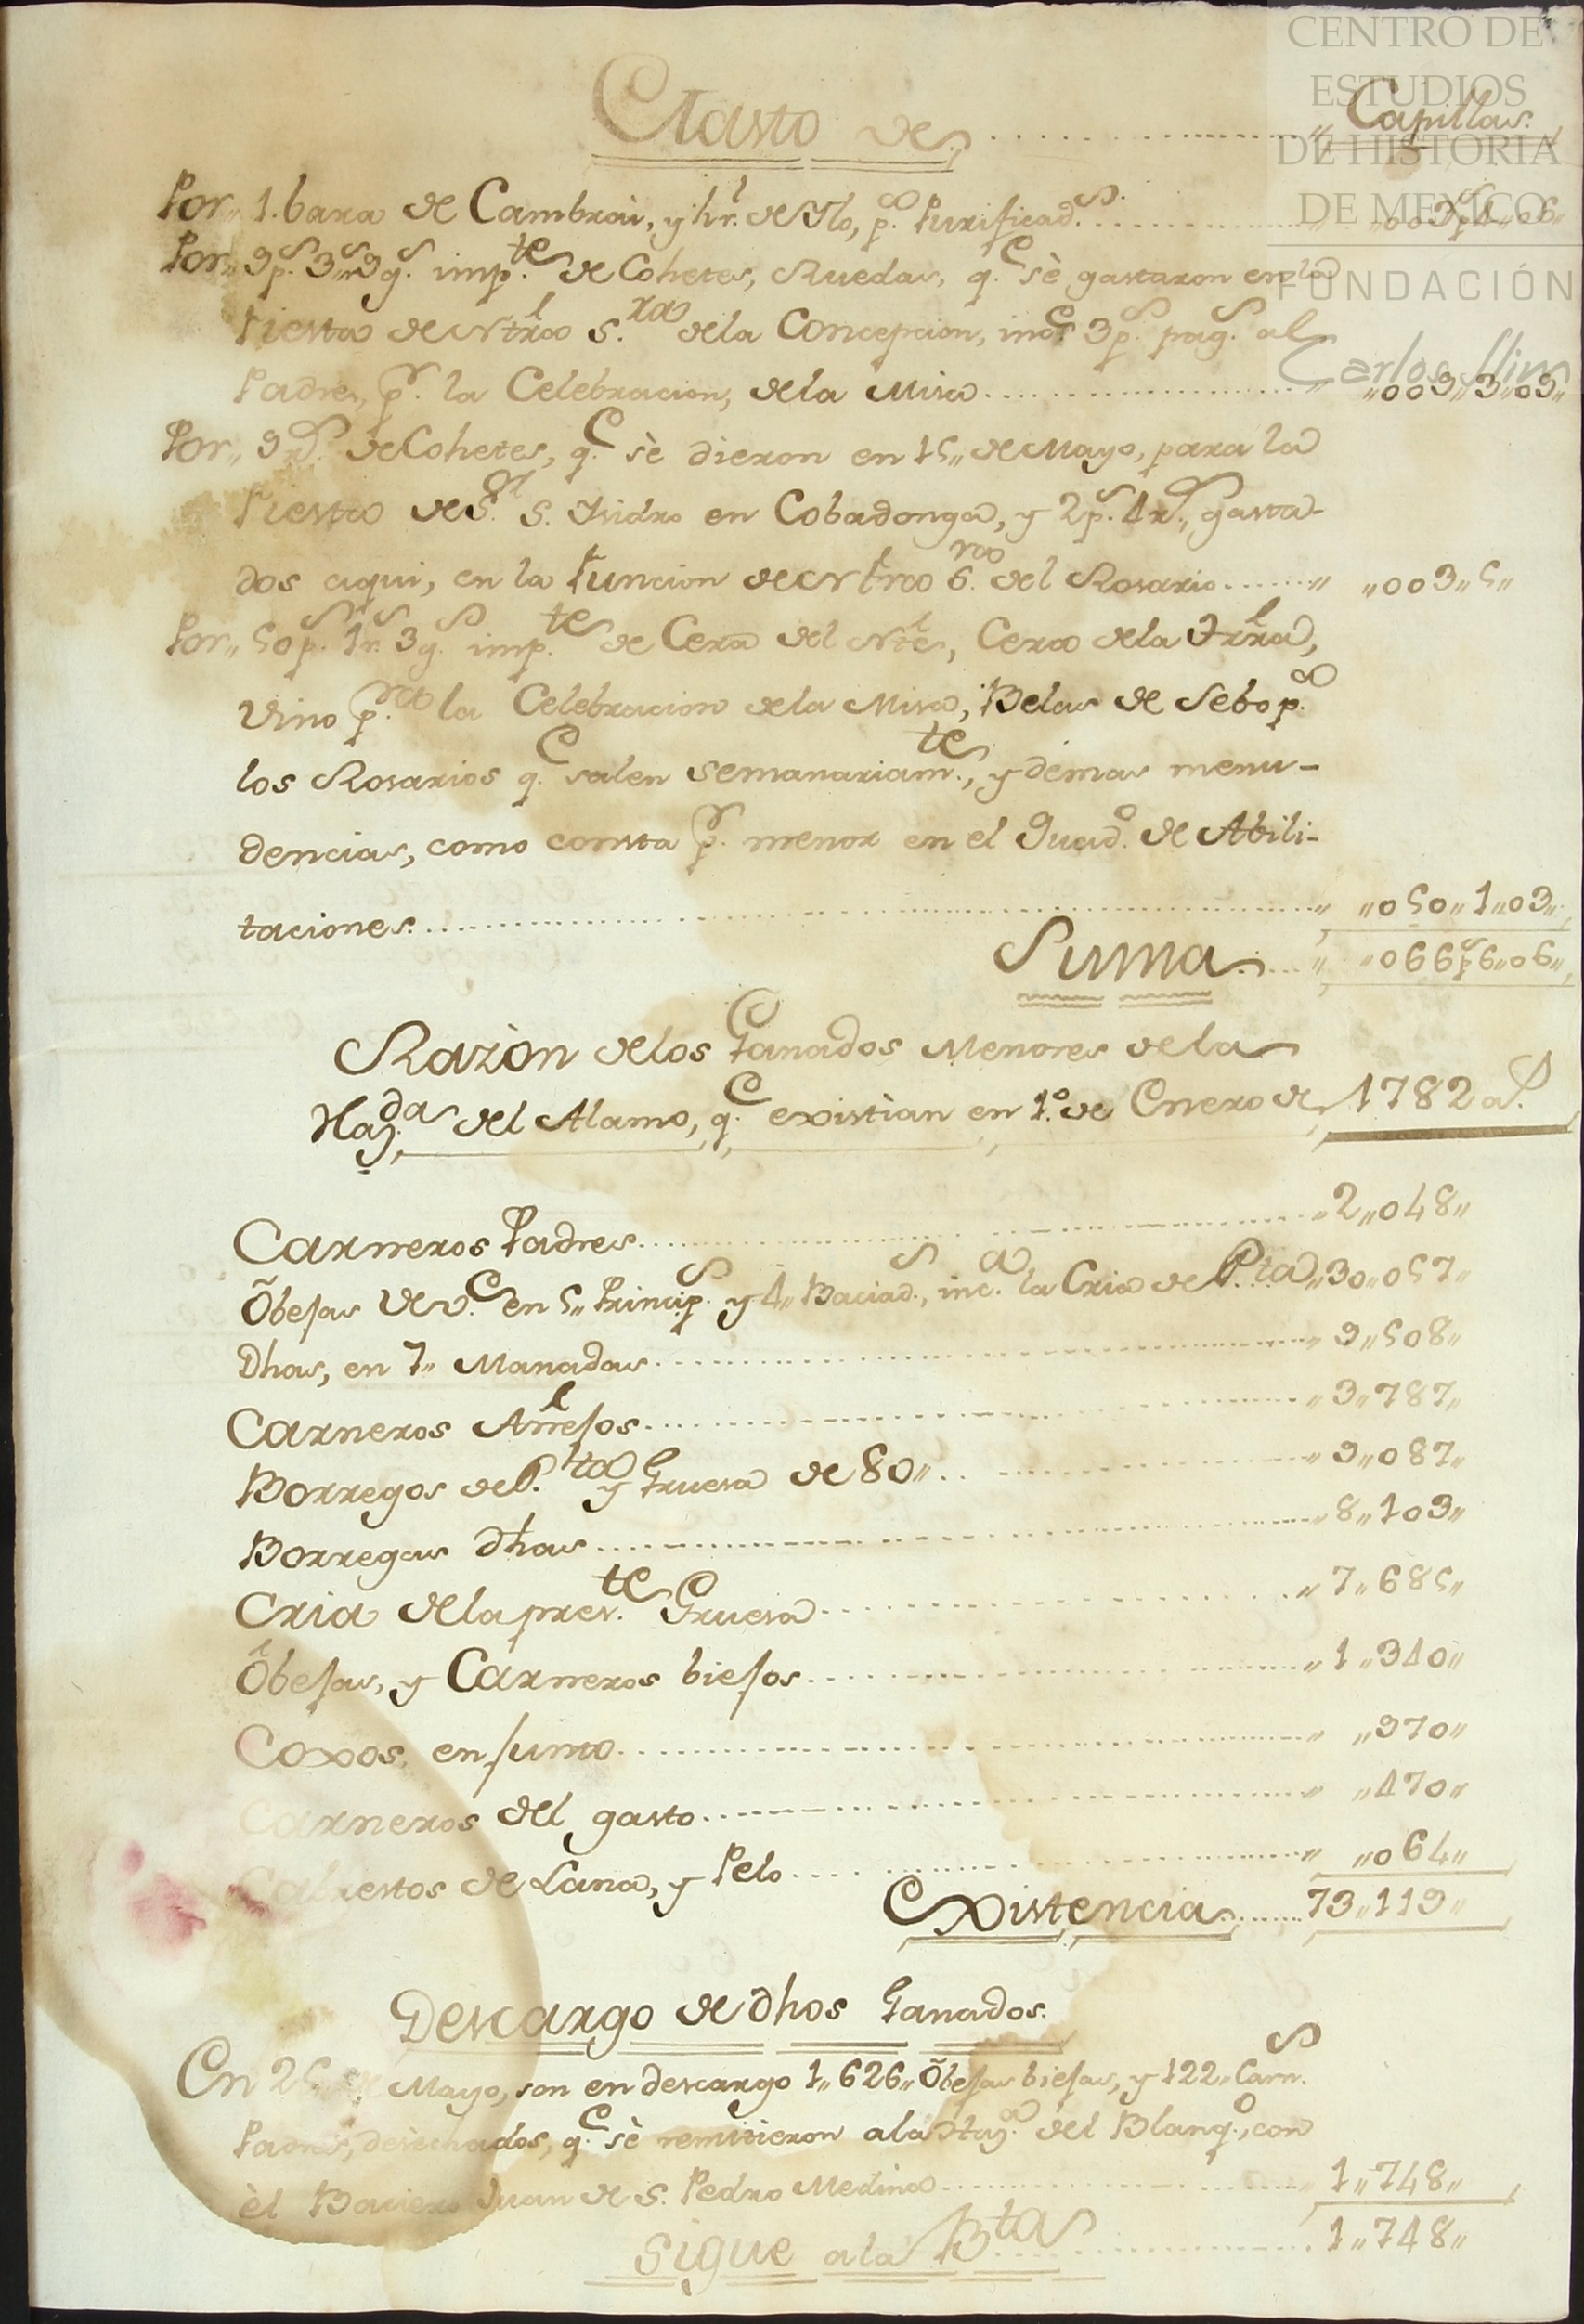 CENTRO DE
ESTUDIOS
DE HISTORIA
DE MEXICO
FUNDACIÓN
Carlos Slim
Gasto de .......... „ Capillas.
Por„ 1. bara de Cambrai, y hr. de Ylo, p.ª Purificad.s .......... „003p4„06„
Por„ 9p.s 3r.s 9g.s imp.te de Cohetes, Ruedas, q.e sè gastaron en la
Fiesta de Ntra S.ra dela Concepcion, inc.s 3p.s pag.s al
Padre, p.r la Celebracion, dela Misa .......... „ „009„3„09„
Por„ 9 r.s de Cohetes, q.e sè dieron en 15„ de Mayo, para la
Fiesta de S.or S. Isidro en Cobadonga, y 2p.s 4r.s, gasta-
dos aqui, en la Funcion de Ntra S.ra del Rosario ....... „ „003„5„
Por„ 50p.s 1r. 3g.s imp.te de Cera del Nte, Cera dela Trra,
Vino p.ra la Celebracion dela Misa, Belas de Sebo p.ª
los Rosarios q.e salen semanariam.te, y demas menu-
dencias, como consta p.r menor en el Quad.o de Abili-
taciones .......... „ „050„1„03„
Suma ..... „ „066p.s6„06„
Razòn delos Ganados Menores dela
Haz.da del Alamo, q.e existian en 1.º de Enero de 1782 a.s
Carneros Padres .......... „2„048„
Õbejas de v.e en 5„ Princip.s y 4„ Baciad.s, inc.ª la Cria de P.ta „30„057„
Dhas, en 7„ Manadas .......... „9„508„
Carneros Añejos .......... „3„787„
Borregos de P.ta y Gruesa de 80„ .......... „9„087„
Borregas Dhas .......... „8„103„
Cria dela pres.te Gruesa .......... „7„685„
Õbejas, y Carneros biejos .......... „1„340„
Coxos, enjunto .......... „ „970„
Carneros del gasto .......... „ „470„
Cabrestos de Lana, y Pelo .......... „ „064„
Existencia ....... 73„119„
Descargo de Dhos Ganados.
En 25„ de Mayo, son en descargo 1„626„ Õbejas biejas, y 122„ Carn.s
Padres, desechados, q.e sè remitieron ala Haz.ª del Blanq.o, con
èl Baciero Juan de S. Pedro Medina .......... „ 1„748„
Sigue ala B.ta .......... 1„748„